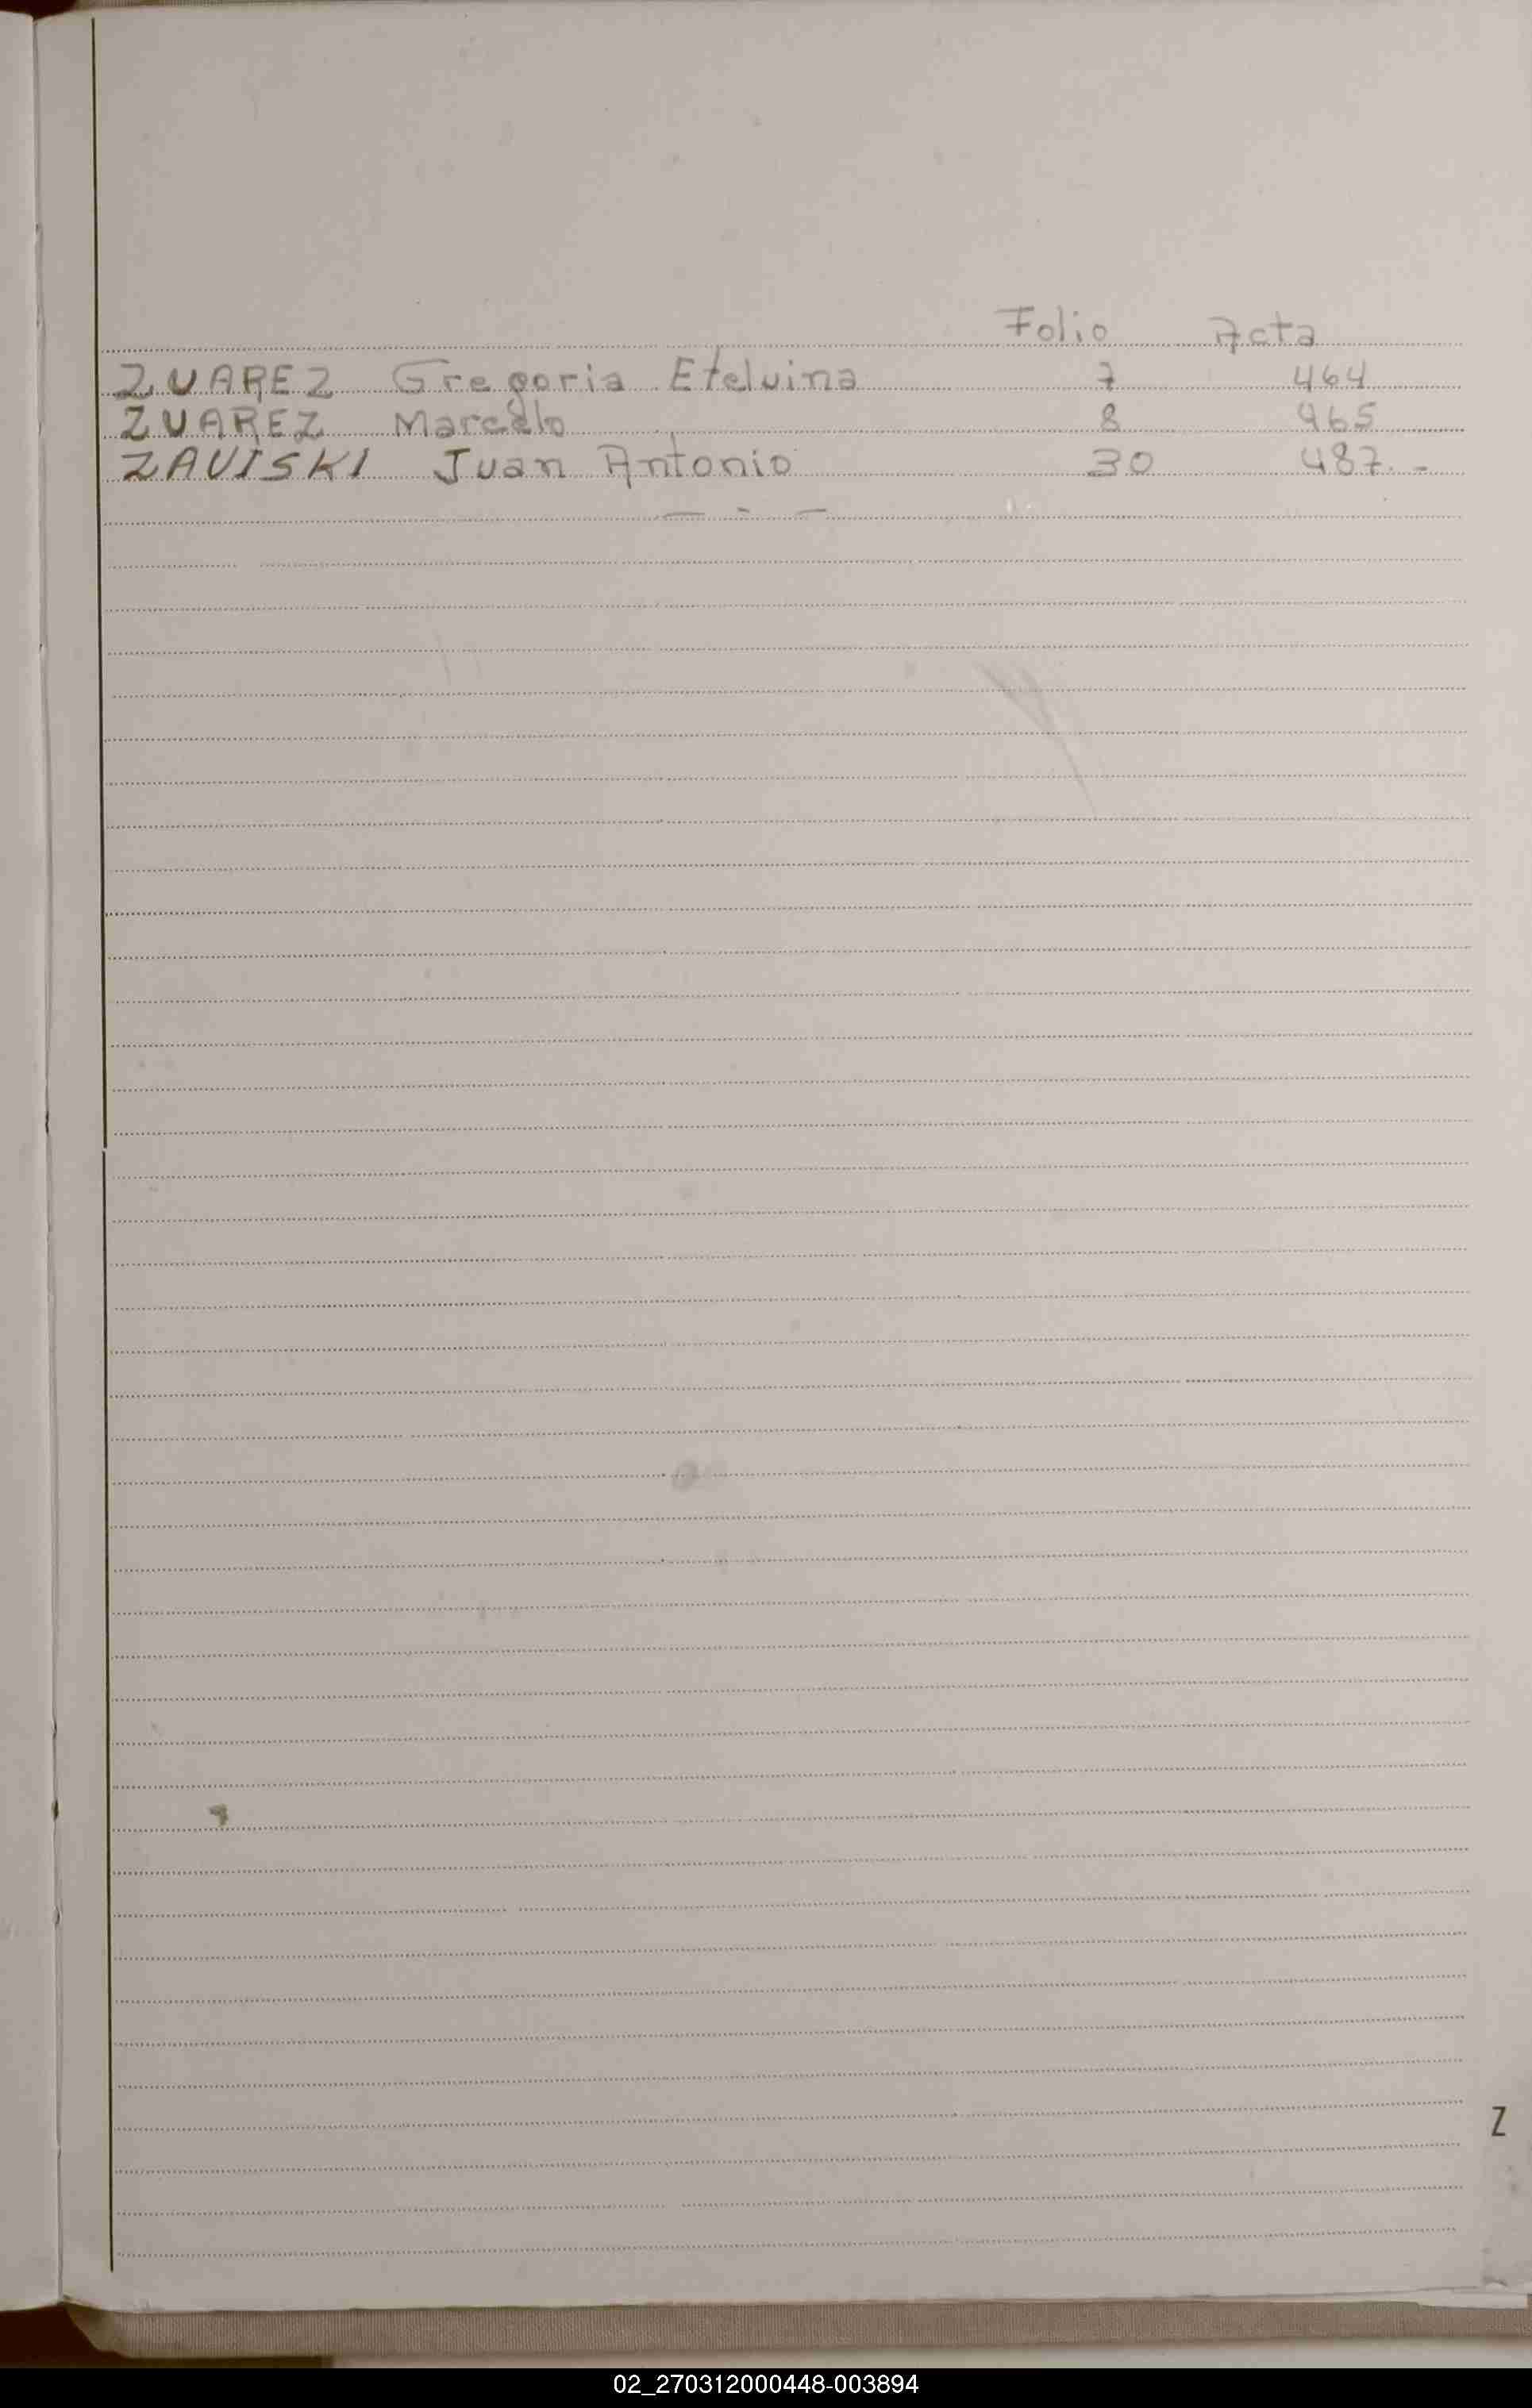 Folio Acta
ZUAREZ Gregoria Etelvina 7 464
ZUAREZ Marcelo 8 465
ZAVISKI Juan Antonio 30 487.-
— - —
Z
02_270312000448-003894